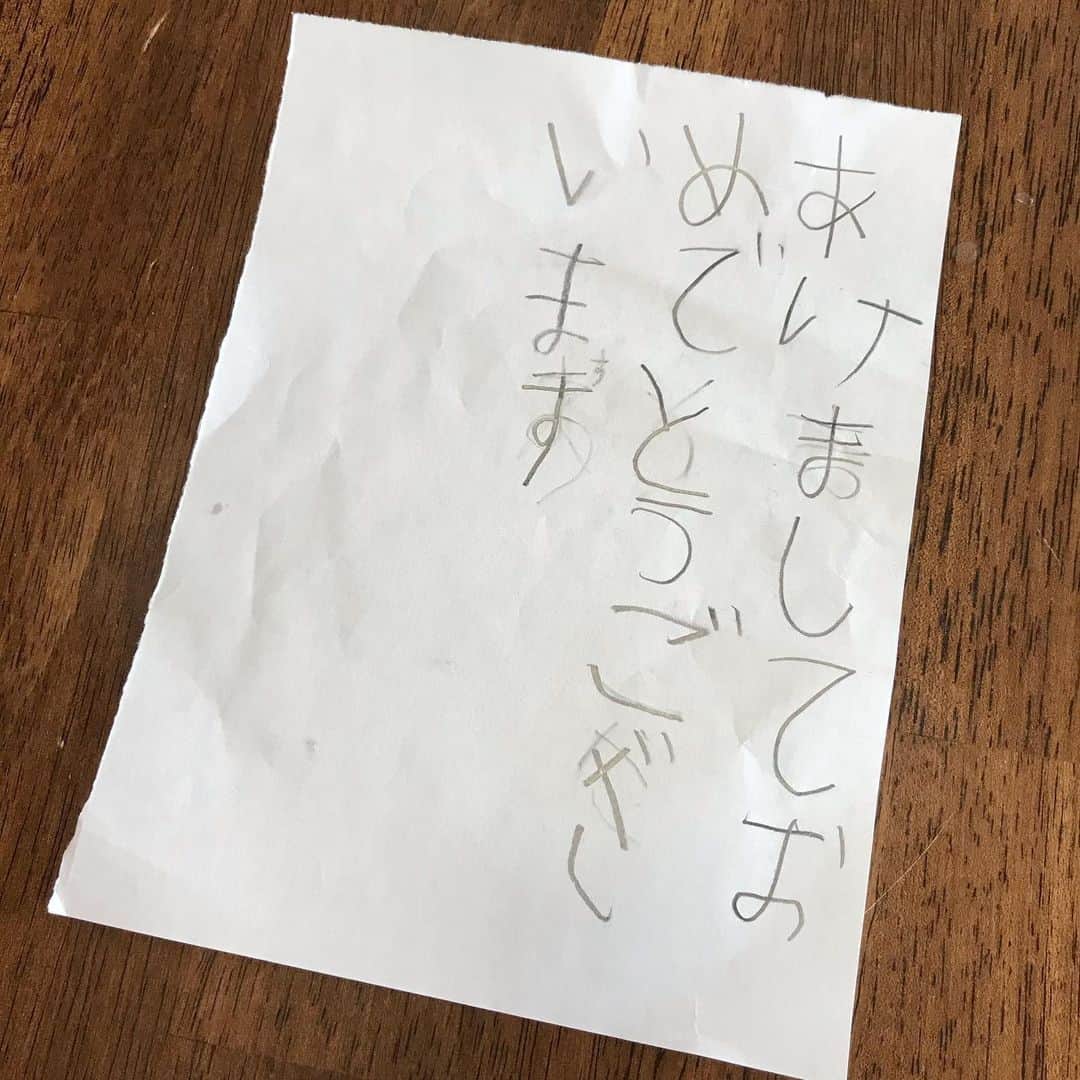 あけましてお
めでとうございざ
います